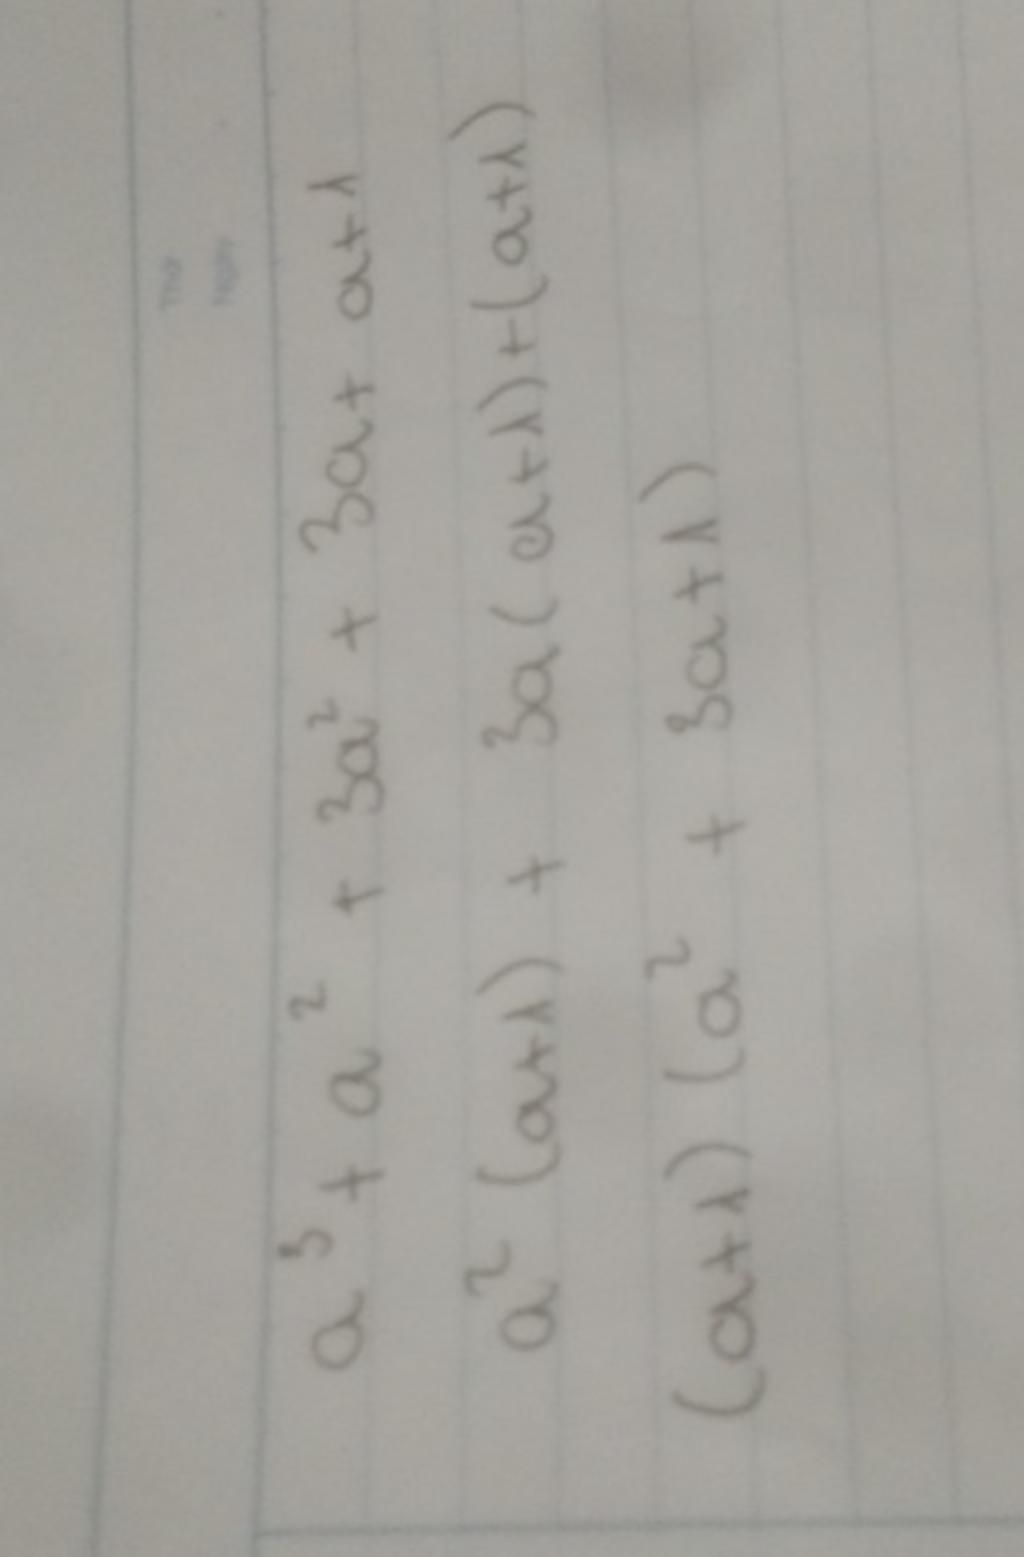 a³ + a² + 3a² + 3a + a+1
a² (a+1) + 3a (a+1) + (a+1)
(a+1) (a² + 3a+1)